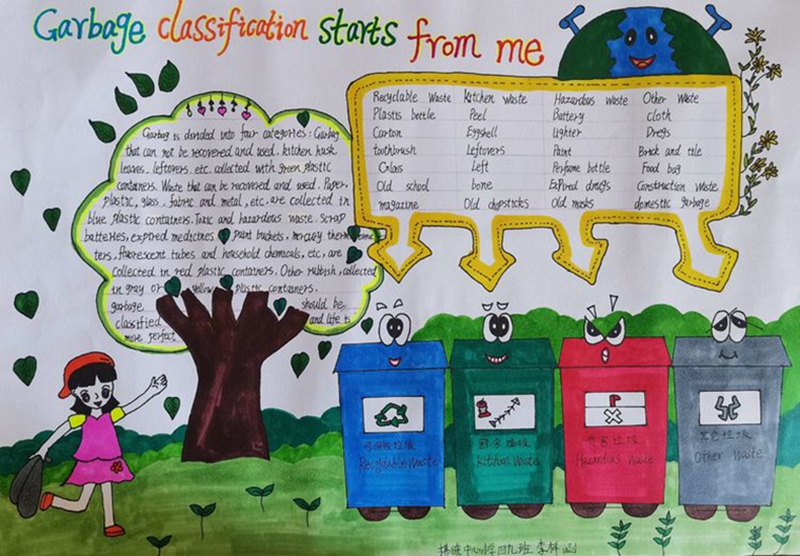 Garbage classification starts from me
Garbag is divided into four categories: Garbag
that can not be recovered and used. kitchen husk
leaves, leftovers. etc. collected with green plastic
containers. Waste that can be recovered and used. Paper,
plastic, glass, fabric and metal, etc. are collected in
blue plastic containers. Toxic and hazardous waste. Scrap
batteries, expired medicines paint buckets, mercury thermome
ters, fluorescent tubes and household chemicals, etc, are
collected in red plastic containers. Other rubbish, collected
in gray or yellow plastic containers.
garbage should be
classified and life is
more perfect
Recyclable Waste Kitchen Waste Hazardous Waste Other Waste
Plastis bottle Peel Battery cloth
Carton Eggshell Lighter Dregs
toothbrush Leftovers Paint Brick and tile
Glass Left Perfume bottle Food bag
Old school bone Expired drugs Construction Waste
magazine Old chopsticks Old masks domestic garbage
可回收垃圾 厨余垃圾 有害垃圾 其他垃圾
Recyclable Waste Kitchen Waste Hazardus Waste Other Waste
中心小学四九班 李梓